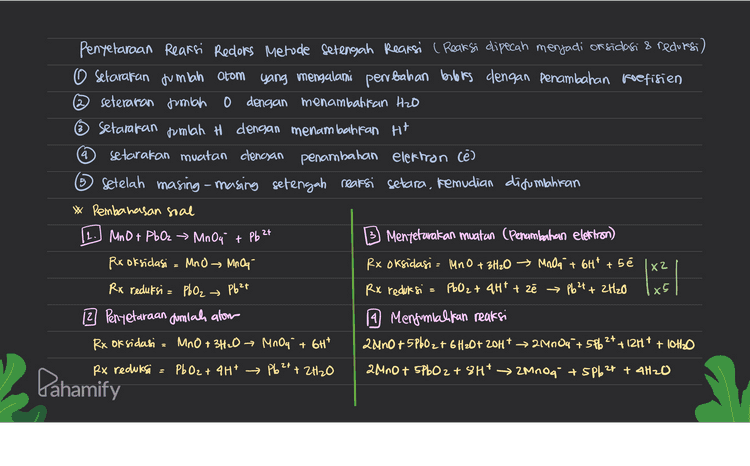 Penyetaraan Reaksi Redoks Metode Setengah Reaksi (Reaksi dipecah menjadi oksidasi & reduksi)
① Setarakan jumlah atom yang mengalami perubahan biloks dengan penambahan koefisien
② setarakan jumlah O dengan menambahkan H₂O
③ Setarakan jumlah H dengan menambahkan H⁺
④ setarakan muatan dengan penambahan elektron (ē)
⑤ Setelah masing-masing setengah reaksi setara, kemudian dijumlahkan
※ Pembahasan soal
1. MnO + PbO₂ → MnO₄⁻ + Pb²⁺
Rx oksidasi = MnO → MnO₄⁻
Rx reduksi = PbO₂ → Pb²⁺
2 Penyetaraan jumlah atom
Rx oksidasi = MnO + 3H₂O → MnO₄⁻ + 6H⁺
Rx reduksi = PbO₂ + 4H⁺ → Pb²⁺ + 2H₂O
3 Menyetarakan muatan (Penambahan elektron)
Rx oksidasi = MnO + 3H₂O → MnO₄⁻ + 6H⁺ + 5ē | x2
Rx reduksi = PbO₂ + 4H⁺ + 2ē → Pb²⁺ + 2H₂O | x5
4 Menjumlahkan reaksi
2MnO + 5PbO₂ + 6H₂O + 20H⁺ → 2MnO₄⁻ + 5Pb²⁺ + 12H⁺ + 10H₂O
2MnO + 5PbO₂ + 8H⁺ → 2MnO₄⁻ + 5Pb²⁺ + 4H₂O
Pahamify